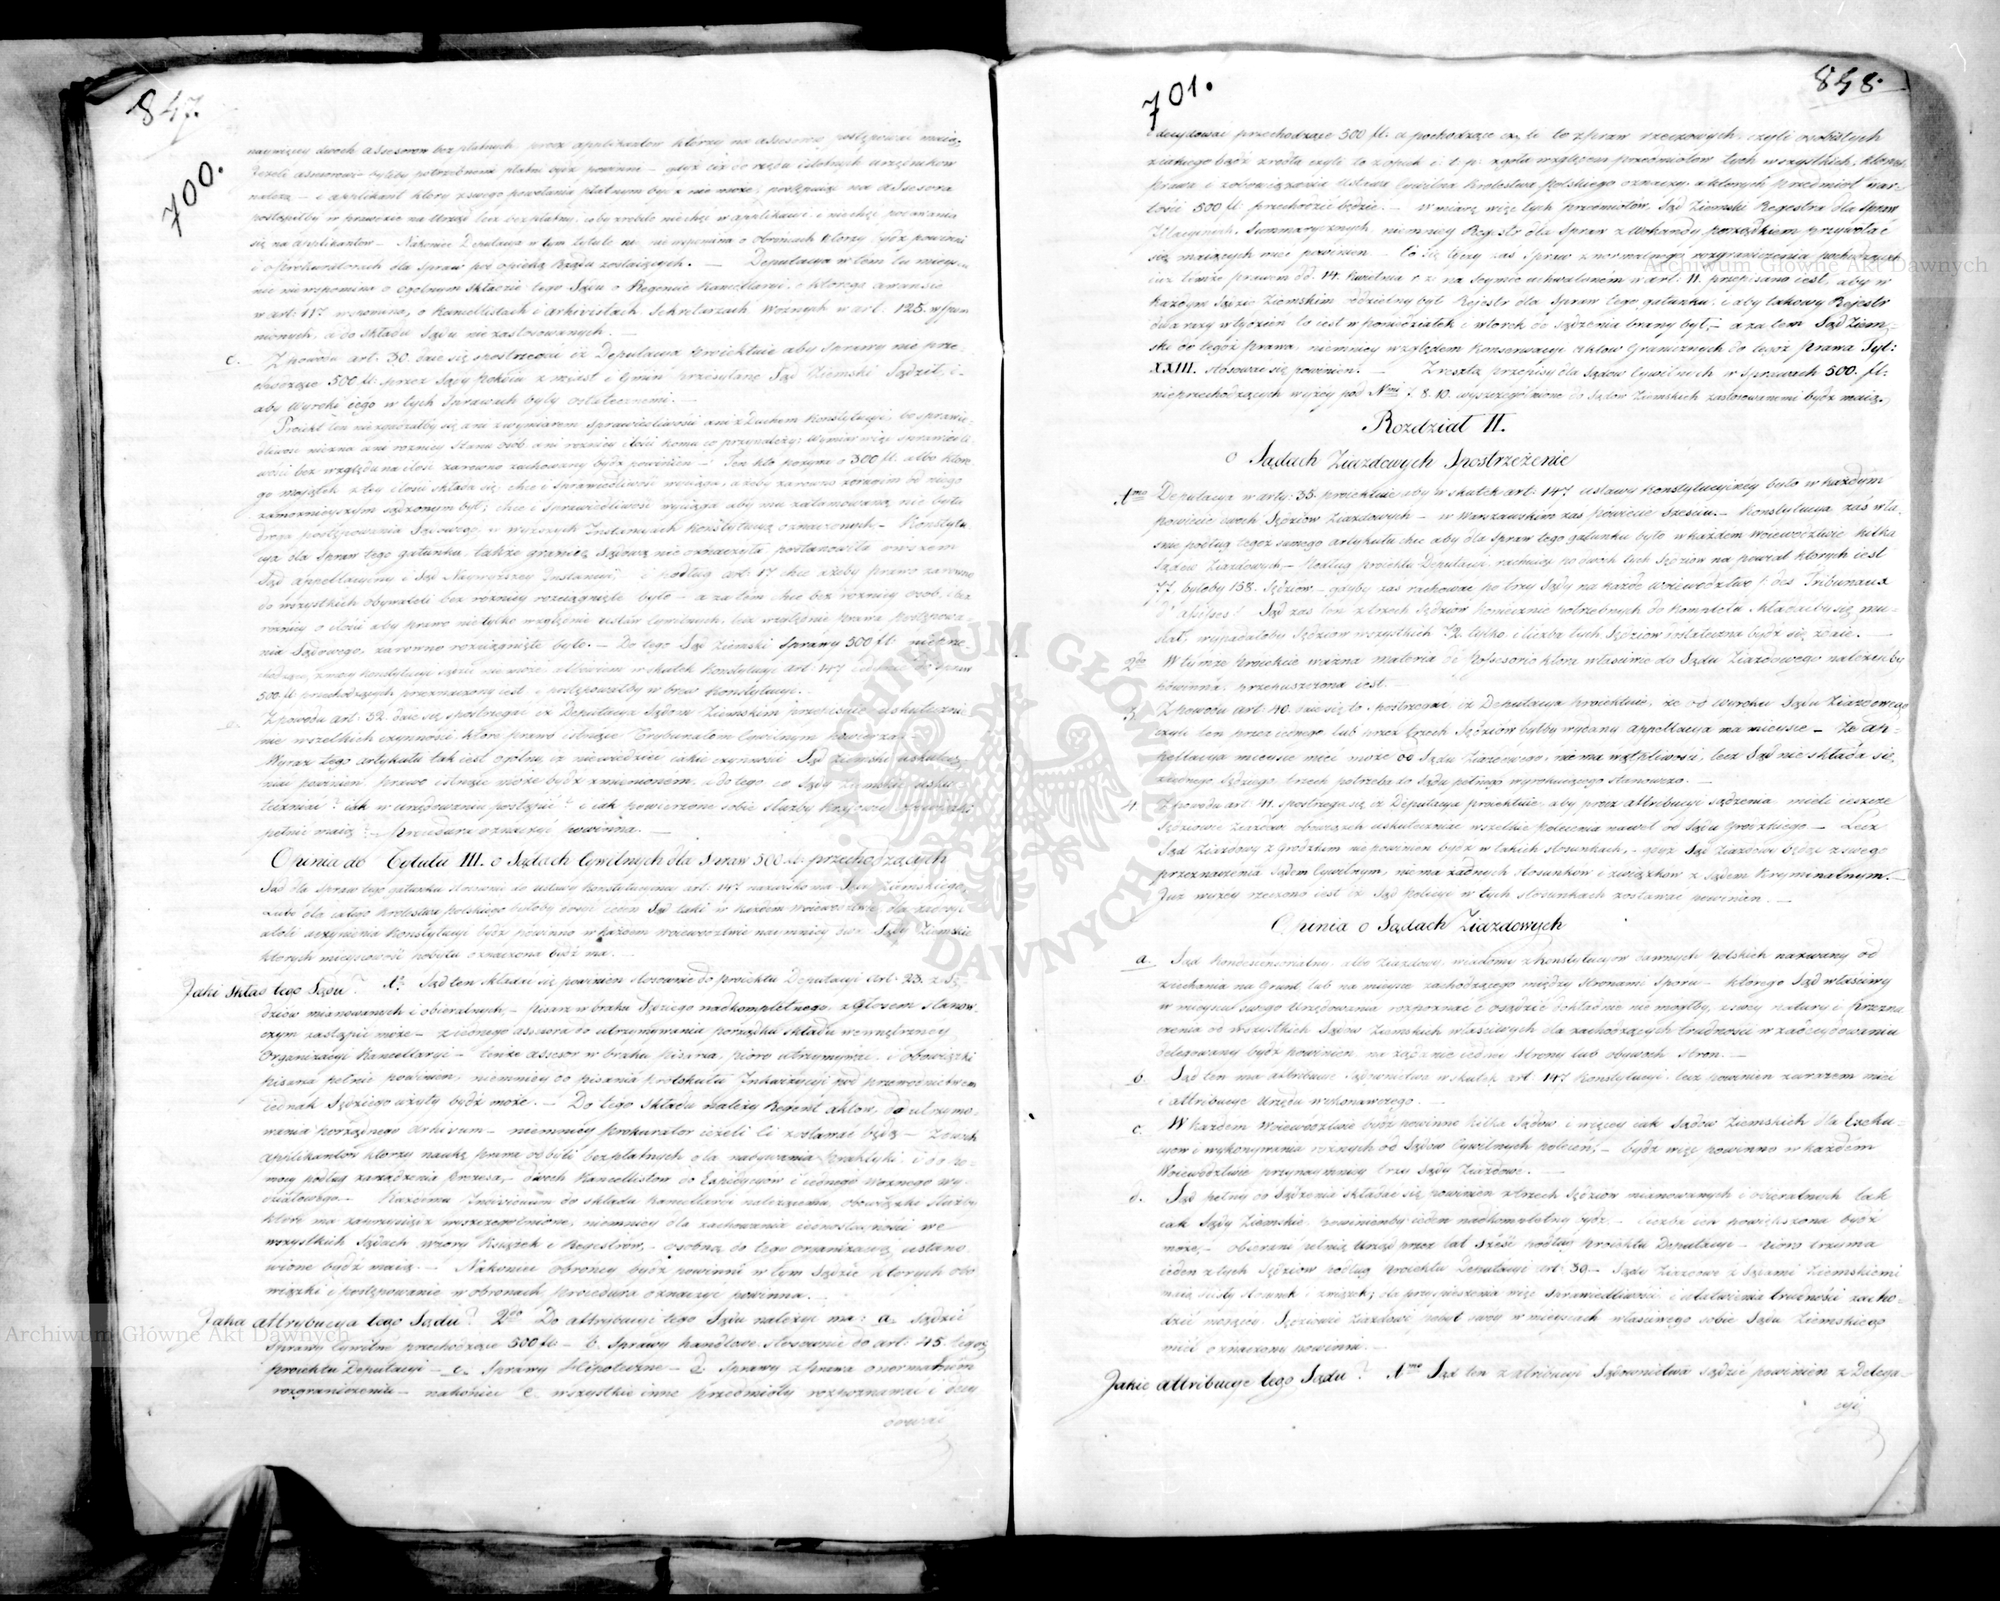 847.
700.
naywięcey dwoch assessorow bezpłatnych przez applikantów którzy na assessorów postępować maią.
należą – i applikant który z swego powołania płatnym bydź nie może, postępuiąc na assesora
się na applikantów – Nakoniec Deputacya w tym tytule nic nie wspomina o obrońcach którzy bydź powinni
i o prokuratorach dla spraw pod opieką Rządu zostaiących. — Deputacya w tém tu mieys-
nie niewspomina o ogólnym składzie tego Sądu o Regencie Kancellaryi, o którego awansie
w art. 117 wspomina, o Kancellistach i archivistach, Sekretarzach Woźnych w art. 125. wspom
nionych, a do składu Sądu nie zastosowanych. —
c. Z powodu art: 30. daie się spostrzegać iż Deputacya proiektuie aby sprawy nie prze-
chodzące 500 fl: przez Sądy Pokoiu z miast i Gmin przesyłane Sąd Ziemski sądził, i
aby wyroki iego w tych sprawach były ostatecznemi. —
Proiekt ten niezgadzałby się ani z wymiarem sprawiedliwości ani z duchem Konstytucyi, bo sprawie-
dliwość niezna ani różnicy stanu osób ani różnicy ilości komu co przynależy; wymiar więc sprawiedli
wości bez względu na ilość zarówno zachowany bydź powinien – Ten kto pozywa o 300 fl. albo które-
go maiątek z tey ilości składa się, chce i sprawiedliwość wyciąga, ażeby zarówno
zamożnieyszym sądzonym był; chce i sprawiedliwość wyciąga aby mu zatamowaną nie była
droga postępowania Sądowego, w wyższych Instancyach Konstytucyą oznaczonych – Konstytu-
cya dla Spraw tego gatunku, także granicę Sądową nie oznaczyła postanowiła owszem
Sąd appellacyiny i Sąd Naywyższey Instancyi; i podług art: 17 chce ażeby prawo zarówno
do wszystkich obywateli bez różnicy rozciągnięte było – a za tém chce bez różnicy osób, i bez
różnicy o ilość aby prawo nie tylko względnie ustaw Cywilnych, lecz względnie prawa postępowa-
nia Sądowego, zarówno rozciągnięte było. – Do tego Sąd Ziemski sprawy 500 fl. nieprze-
chodzące, z mocy Konstytucyi sądzić nie może, albowiem w skutek Konstytucyi art: 147 iedynie do spraw
500 fl. przechodzących przeznaczony iest i postępowałby w brew Konstytucyi. –
Z powodu art: 32. daie się spostrzegać iż Deputacya Sądom Ziemskim przepisuie uskutecznie
nie wszelkich czynności które prawo istnieiące Trybunałom Cywilnym powierza –
Wyraz tego artykułu tak iest ogólny, iż niewiedzieć iakie czynności Sąd Ziemski uskutecz-
niać powinien, prawo istnieiące może bydź zmienioném, a do tego co Sądy Ziemskie usku-
teczniać? iak w urzędowaniu postąpić? i iak powierzone sobie służby Kraiowe
pełnić maią? – Procedura oznaczyć powinna. —
Opinia do Tytułu III. o Sądach Cywilnych dla Spraw 500 fl: przechodzących
Sąd dla spraw tego gatunku stosownie do ustawy Konstytucyiney art: 147 nazwisko ma Sądu Ziemskiego,
Lubo dla całego Królestwa Polskiego byłoby dosyć ieden Sąd taki w każdem Woiewództwie, dla zadosyć
atoli uczynienia Konstytucyi bydź powinno w każdem woiewództwie naymniey dwa Sądy Ziemskie
których mieyscowość pobytu oznaczona bydź ma. —
Jaki skład tego Sądu? 1º. Sąd ten składać się powinien stosownie do proiektu Deputacyi art: 23. z Sę-
dziów mianowanych i obieralnych, – pisarz w braku Sędziego nadkompletnego, z głosem stanow-
czym zastąpić może – z iednego assesora do utrzymywania porządku składu wewnętrzney
Organizacyi Kancellaryi – tenże assesor w braku pisarza, pióro utrzymywać, i obowiązki
pisarza pełnić powinien, niemniey do pisania protokułu Inkwizycyi pod przewodnictwem
iednak Sędziego użyty bydź może. – Do tego składu należy Regent aktów, do utrzymy-
wania porządnego Archivum – niemniey prokurator ieżeli ci zostawać będą – Dwóch
applikantów którzy naukę prawa odbyli bezpłatnych dla nabywania praktyki, i do po-
mocy podług zarządzenia prezesa, – dwóch Kancellistów do Expedycyów i iednego Woźnego wy-
działowego. – Każdemu Individuum do składu Kancellaryi należącemu, obowiązki służby,
które ma zaprzysiądz wyszczególnione, niemniey dla zachowania iednostayności we
wszystkich Sądach wzory Książek i Regestrów, – osobną do tego organizacyą ustano
wione bydź maią. – Nakoniec obrońcy bydź powinni w tym Sądzie których obo
wiązki i postępowanie w obronach, procedura oznaczyć powinna. —
Jaka attrybucya tego Sądu? 2do Do attrybucyi tego Sądu należyć ma: a. sądzić
sprawy Cywilne przechodzące 500 fl: – b. Sprawy handlowe stosownie do art: 45. tegoż
proiektu Deputacyi – c. Sprawy Hipoteczne – d. Sprawy z prawa o normalnym
rozgraniczeniu – nakoniec e. wszystkie inne przedmioty rozpoznawać i decy
dować
701.
848.
decydować przechodzące 500 fl. a pochodzące czy to ze spraw rzeczowych, czyli osobistych
z iakiego bądź źródła czyli to z opiek i. t. p. zgoła względem przedmiotów tych wszystkich, którym
prawa i zobowiązania Ustawa Cywilna Królestwa Polskiego oznaczy, a których przedmiot war-
tości 500 fl: przechodzić będzie. – W miarę więc tych przedmiotów, Sąd Ziemski Regestra dla Spraw
Ultacyinych, Summarycznych, niemniey Regestr dla Spraw z Wokandy porządkiem przywołać
się maiących mieć powinien – Co się tyczy zaś Spraw z normalnego rozgraniczenia pochodzących
iuż témże prawem dd. 14. Kwietnia r. z. na Seymie uchwalonem w art. 11. przepisano iest, aby w
każdym Sądzie Ziemskim oddzielny był Rejestr dla Spraw tego gatunku, i aby takowy Rejestr
dwa razy w tydzień to iest w poniedziałek i wtorek do sądzenia brany był, – a za tem Sąd Ziem-
ski do tegóż prawa, niemniey względem Konserwacyi Aktów Granicznych do tegoż Prawa Tyt:
XXIII. stosować się powinien. – Zresztą przepisy dla Sądów Cywilnych w Sprawach 500. fl:
nieprzechodzących wyżey pod Nmi 7. 8. 10. wyszczególnione do Sądów Ziemskich zastosowanemi bydź maią.
Rozdział II.
o Sądach Ziazdowych Spostrzeżenie
1mo Deputacya w arty: 35. proiektuie aby w skutek art: 147 ustawy Konstytucyiney było w każdym
powiecie dwoch Sędziów Ziazdowych – w Warszawskim zaś Powiecie Sześciu. – Konstytucya zaś wła-
śnie podług tegoż samego artykułu chce aby dla spraw tego gatunku było w każdem Woiewództwie kilka
Sądów Ziazdowych. – Podług proiektu Deputacyi rachuiąc po dwoch tych Sędziów na powiat których iest
77. byłoby 158. Sędziów – gdyby zaś rachować po trzy Sądy na każde woiewództwo /: des Tribunaux
d'assises :/ Sąd zaś ten z trzech Sędziów koniecznie potrzebnych do kompletu składaćby się mu-
siał, wypadałoby Sędziów wszystkich 72 tylko i liczba tych Sędziów dostateczna bydź się zdaie. –
2do W tymże proiekcie ważna materia de Possesorio która właściwie do Sądu Ziazdowego należećby
powinna, przepuszczona iest. –
3. Z powodu art: 40. daie się to postrzegać iż Deputacya proiektuie, że od wyroku Sądu Ziazdowego
czyli ten przez iednego lub przez trzech Sędziów byłby wydany appellacya ma mieysce – Że ap-
pellacya mieysce mieć może od Sądu Ziazdowego, niema wątpliwości, lecz Sąd nie składa się
z iednego Sędziego, trzech potrzeba do Sądu pełnego wyrokuiącego stanowczo. –
4. Z powodu art: 41. spostrzega się iż Deputacya proiektuie, aby prócz attribucyi sądzenia mieli ieszcze
Sędziowie Ziazdowi obowiązek uskuteczniać wszelkie polecenia nawet od Sądu Grodzkiego – Lecz
Sąd Ziazdowy z Grodzkim nie powinien bydź w takich stosunkach, – gdyż Sąd Ziazdowy będąc z swego
przeznaczenia Sądem Cywilnym, niema żadnych stosunków i związków z Sądem Kryminalnym. –
Już wyżey rzeczono iest iż Sąd Policyi w tych stosunkach zostawać powinien. –
Opinia o Sądach Ziazdowych
a. Sąd Kondescensorialny, albo Ziazdowy, wiadomy z Konstytucyów dawnych Polskich nazwany od
ziechania na Grunt lub na mieysce zachodzącego między Stronami Sporu – którego Sąd właściwy
w mieyscu swego Urzędowania rozpoznać i osądzić dokładnie nie mogłby, z swey natury i przezna
czenia od wszystkich Sądów Ziemskich właściwych dla zachodzących trudności w zadecydowaniu
delegowany bydź powinien na żądanie iedney Strony lub obuwóch stron. –
b. Sąd ten ma attribucye Sądownictwa w skutek art: 147 Konstytucyi lecz powinien zarazem mieć
i attribucye Urzędu wykonawczego. –
c. W każdem Woiewództwie bydź powinno kilka Sądów i więcey iak Sądów Ziemskich dla Exeku-
cyów i wykonywania różnych od Sądów Cywilnych poleceń, – bydź więc powinno w każdém
Woiewództwie przynaymniey trzy Sądy Ziazdowe. –
d. Sąd pełny do Sądzenia składać się powinien z trzech Sędziów mianowanych i obieralnych tak
iak Sądy Ziemskie, powinienby ieden nadkompletny bydź – liczba ich powiększona bydź
może, – obierani pełnią Urząd przez lat sześć podług proiektu Deputacyi – pióro trzyma
ieden z tych Sędziów podług proiektu Deputacyi art: 39. – Sądy Ziazdowe z Sądami Ziemskiemi
maią ścisły stosunek i związek; dla przyspieszenia więc sprawiedliwości i ułatwienia trudności zacho-
dzić mogącey, Sędziowie Ziazdowi pobyt swóy w mieyscach właściwego sobie Sądu Ziemskiego
mieć oznaczony powinni. –
Jakie attribucye tego Sądu? 1mo Sąd ten z atribucyi Sądownictwa sądzić powinien z Delega-
cyi
Archiwum Główne Akt Dawnych
Archiwum Główne Akt Dawnych
ARCHIWUM GŁÓWNE AKT DAWNYCH